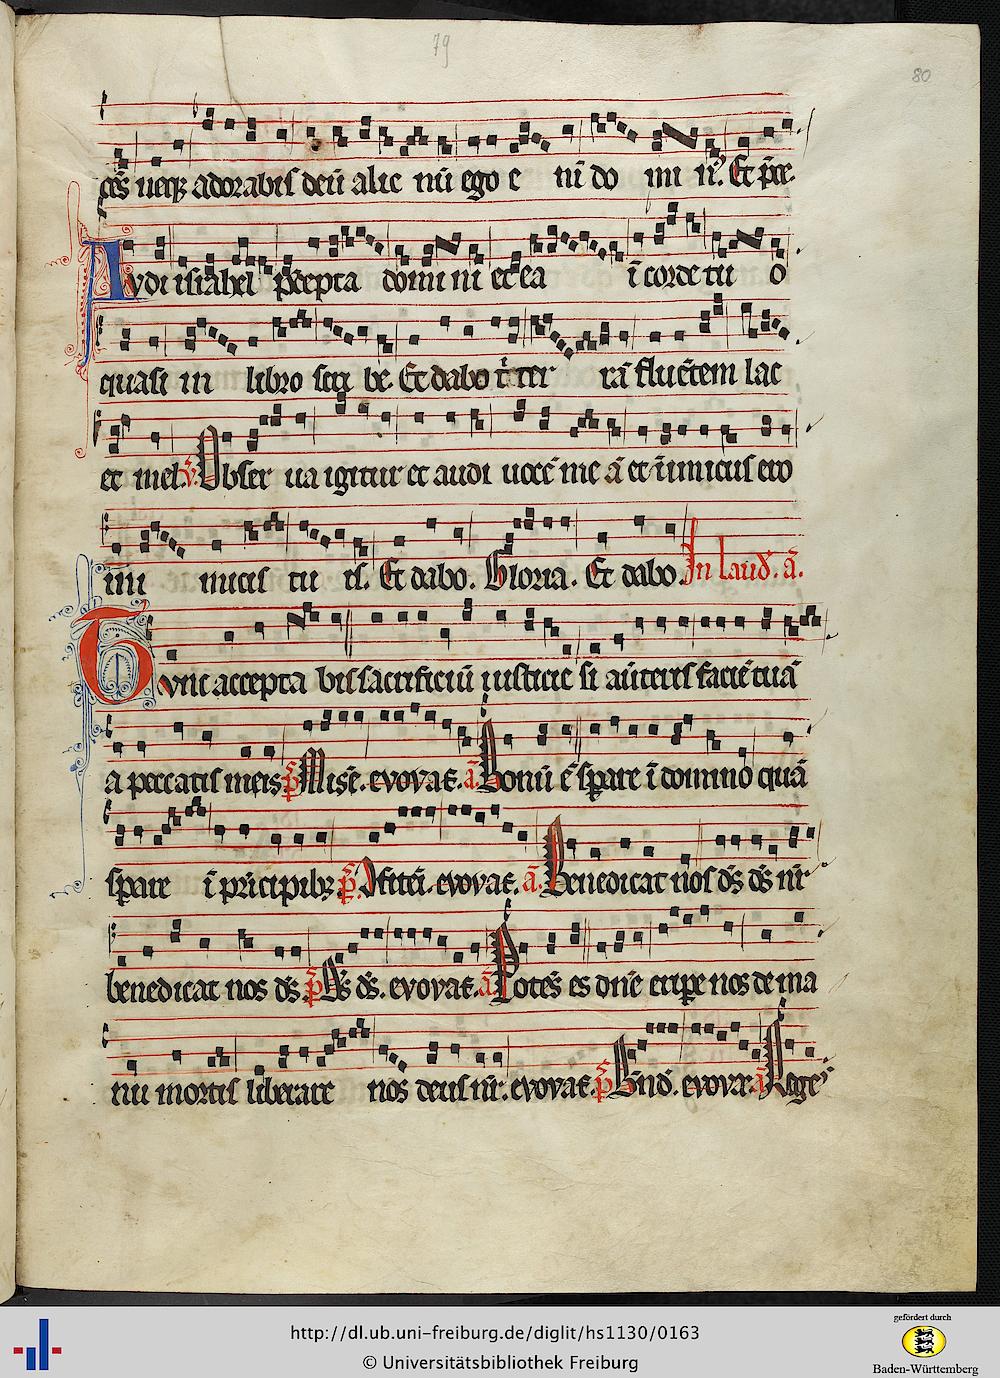 79
80
ces neq; adorabis deū alie nū ego e ni do mi n'. Et p̄ce.
Audi israhel precepta domi ni et ea ī corde tu o
quasi in libro scri be Et dabo t' ter rā fluētem lac
et mel. V̄ Obser ua igitur et audi uocē me ā et īimicus ero
ini micis tu is. Et dabo. Gloria. Et dabo. In laud'. ā.
Tunc accepta bis sacrificiū iusticie si aūteris faciē tuā
a peccatis meis p̄s Misē. evovae. ā. Bonū ē sperare ī domino quā
sperare ī prīcipib; p̄s. Ofitēi. evovae. ā. Benedicat nos d̄s d̄s nr̄
benedicat nos d̄s. p̄s D̄s d̄s. evovae. ā Potēs es dn̄e eripe nos de ma
nu mortis liberare nos deus nr̄. evovae. p̄s Bn̄d. evovae. ā Rege
http://dl.ub.uni-freiburg.de/diglit/hs1130/0163
© Universitätsbibliothek Freiburg
gefördert durch
Baden-Württemberg